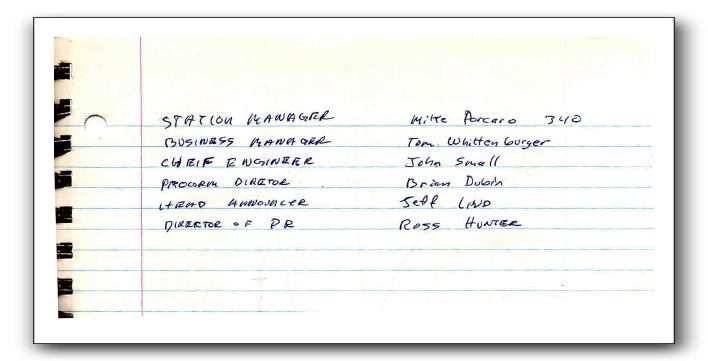 STATION MANAGER Mike Porcaro 340
BUSINESS MANAGER Tom Whittenburger
CHEIF ENGINEER John Small
PROGRM DIRECTOR Brian Dubin
HEAD ANNOUNCER Jeff LIND
DIRECTOR OF PR ROSS HUNTER